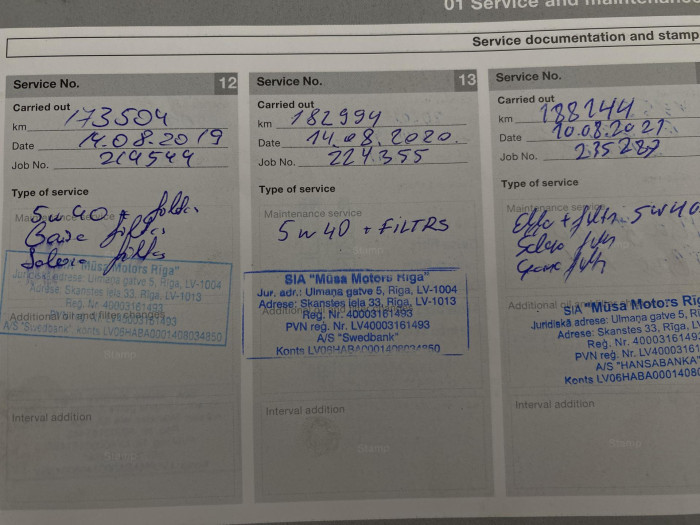 01 Service and maintenance
Service documentation and stamp
Service No. 12
Carried out
km 173504
Date 14.08.2019
Job No. 219544
Type of service
Maintenance service
5w40 + filtrs
filtrs
Salona filtrs
SIA "Mūsa Motors Rīga"
Juridiskā adrese: Ulmaņa gatve 5, Rīga, LV-1004
Adrese: Skanstes iela 33, Rīga, LV-1013
Reģ. Nr. 40003161493
PVN reģ. Nr. LV40003161493
Additional oil and filter changes
A/S "Swedbank", konts LV06HABA0001408034850
Stamp
Interval addition
Stamp
Service No. 13
Carried out
km 182994
Date 14.08.2020.
Job No. 224355
Type of service
Maintenance service
5w40 + FiLTRS
Stamp
SIA "Mūsa Motors Rīga"
Jur. adr.: Ulmaņa gatve 5, Rīga, LV-1004
Adrese: Skanstes iela 33, Rīga, LV-1013
Reģ. Nr. 40003161493
PVN reģ. Nr. LV40003161493
A/S "Swedbank"
Konts LV06HABA0001408034850
Stamp
Interval addition
Stamp
Service No.
Carried out
km 188144
Date 10.08.2021
Job No. 235287
Type of service
Maintenance service
Eļļa + filtrs 5w40
Salona filtrs
filtrs
Additional oil an
SIA "Mūsa Motors Rīg
Juridiskā adrese: Ulmaņa gatve 5, Rī
Adrese: Skanstes 33, Rīga, L
Reģ. Nr. 40003161493
PVN reģ. Nr. LV400031614
A/S "HANSABANKA"
Konts LV06HABA00014080
Interval addition
Stamp